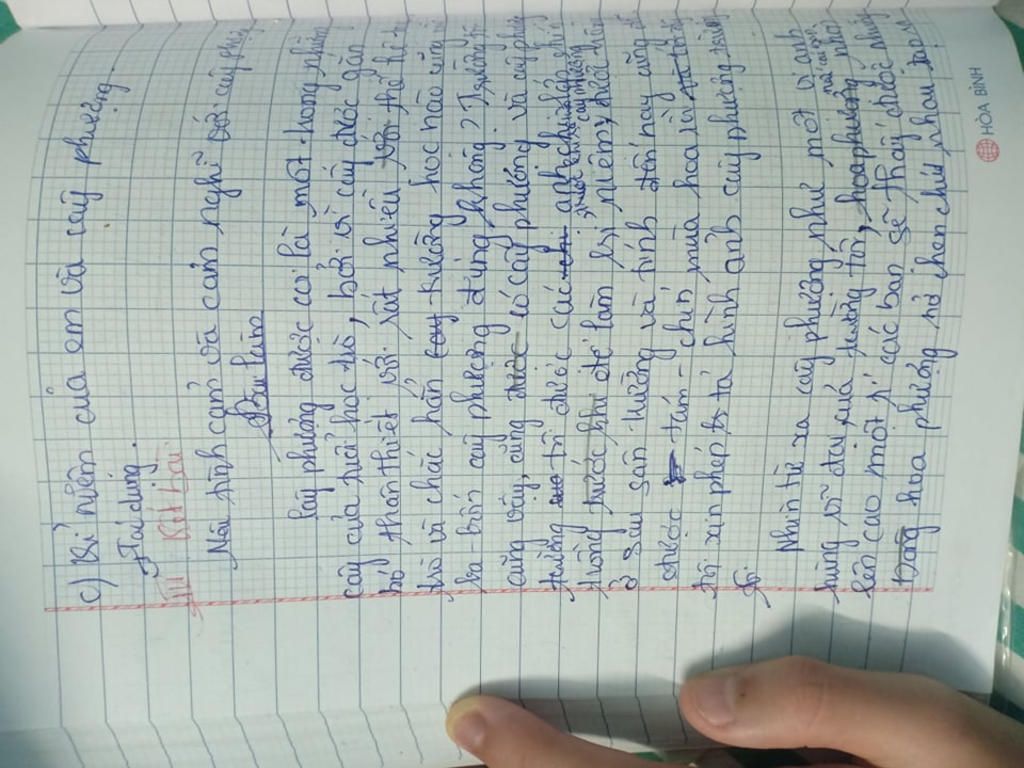 c) Kỉ niệm của em và cây phượng.
→ Tác dụng.
III Kết bài:
Nêu tình cảm và cảm nghĩ với cây phượng
Bài làm
Cây phượng được coi là một trong những
cây của tuổi học trò, bởi vì cây được gắn
bó thân thiết với rất nhiều với thế hệ
trò và chắc hẳn trường học nào cũng
ba-bốn cây phượng đúng không? Trường tôi
cũng vậy, cũng có cây phượng và cây phượng
trường tôi được các anh chị
trồng trước khi để làm kỉ niệm
ở sau sân trường và tính đến nay cũng đã
được tám-chín mùa hoa rồi
tôi xin phép tả hình ảnh cây phượng trường
tôi.
Nhìn từ xa cây phượng như một vị anh
hùng vĩ đại của trường tôi, hoa phượng nhô
lên cao một tí các bạn sẽ thấy được những
bông hoa phượng nở chen chúc nhau tạo
HÒA BÌNH